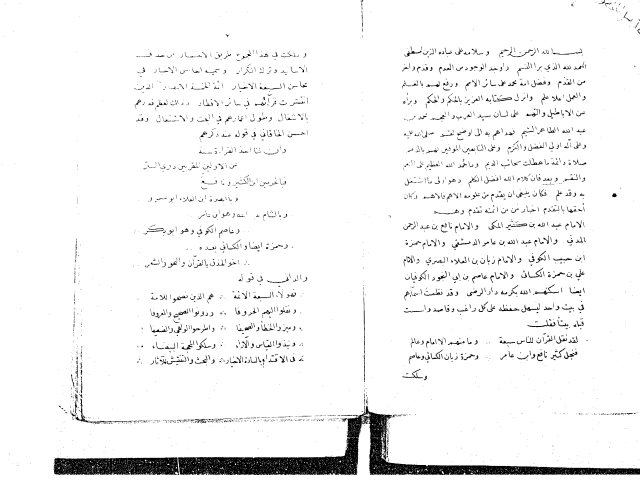 بسم الله الرحمن الرحيم وسلام على عباده الذين اصطفى
الحمد لله الذي برا النسم واوجد الوجود من العدم وقدم واخر
من القدم وفضل امة محمد على سائر الامم ورفع لهم بالعلم
والعمل اعلا علم وانزل كتابه العزيز بالحكم والحكم وبرأه
من الاباطيل على لسان سيد العرب والعجم محمد بن
عبد الله الطاهر الشيم فهداهم به الى اوضح لقم صلى الله عليه
وعلى آله اولي الفضل والكرم وعلى التابعين الموفين لهم بالذمم
صلاة دائمة ما هطلت سحائب الديم
والنقم وبعد فان كلام الله افضل الكلم وهو اولى ما اشتغل
به وقد علم فكان ينبغي ان يقدم من علومه الاهم فالاهم وكان
احقها بالتقدم اخبار من من ائمته تقدم وهم
الامام عبد الله بن كثير المكي والامام نافع بن عبد الرحمن
المدني والامام عبد الله بن عامر الدمشقي والامام حمزة
ابن حبيب الكوفي والامام زبان بن العلاء البصري والامام
علي بن حمزة الكسائي والامام عاصم بن ابي النجود الكوفيان
ايضا اسكنهم الله بكرمه دار الرضى وقد نظمت اسماءهم
في بيت واحد ليسهل حفظه على كل راغب وقاصد واسست
قبله بيتا فقلت
لقد نقل القرآن للناس سبعة وما منهم الا امام وعالم
فنجل كثير نافع وابن عامر وحمزة زبان الكسائي وعاصم
وسلكت
وسلكت في هذا المجموع طريق الاختصار من حذف
الاسانيد وترك التكرار وسميته احاسن الاخبار في
محاسن السبعة الاخيار ائمة الخمسة الامصار الذين
انتشرت قرآتهم في سائر الاقطار وذلك لعظم قدرهم
بالاشتغال وطول اعمارهم في البحث والاشتغال وقد
احسن الخاقاني في قوله عند ذكرهم
وان لنا اخذ القراءة سنة
من الاولين المقرئين ذوي الستر
فبالحرمين ابن الكثير ونافع
وبالبصرة ابن العلاء ابو عمرو
وبالشام عبد الله وهو ابن عامر
وعاصم الكوفي وهو ابو بكر
وحمزة ايضا والكسائي بعده
اخو الحذق بالقرآن والنحو والشعر
والداني في قوله
فهولاء السبعة الائمة هم الذين نصحوا للامة
ونقلوا اليهم الحروفا ودونوا الصحيح والمعروفا
وميزوا الخطأ والتصحيفا واطرحوا الواهي والضعيفا
ونبذوا القياس والآراء وسلكوا المحجة البيضاء
في الاقتداء بالسادة الاخيار والبحث والتفتيش للآثار